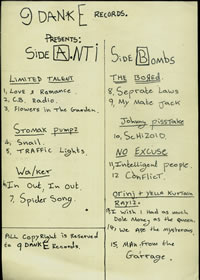 9 DANKE RECORDS.
PRESENTS:
Side A NTi
LIMITED TALENT
1, Love & Romance.
2, C.B. Radio.
3, Flowers in The Garden.
Stomax Pumpz
4, Snail.
5, TRAFFIC Lights.
Walker
6, In Out, In out.
7, Spider Song.
ALL Copyright is Reserved
to 9 DANKE Records.
Side B ombs
THE BORED.
8, Seprate Laws
9, My Mate Jack
Johnny pissTake
10, SCHIZOID.
NO EXCUSE
11, Intelligent people.
12, CONFLICT.
13, I Wish I Had as much
Dole Money as the Queen.
14, We ARE the mysterons
15, MAN from the
Garrage.